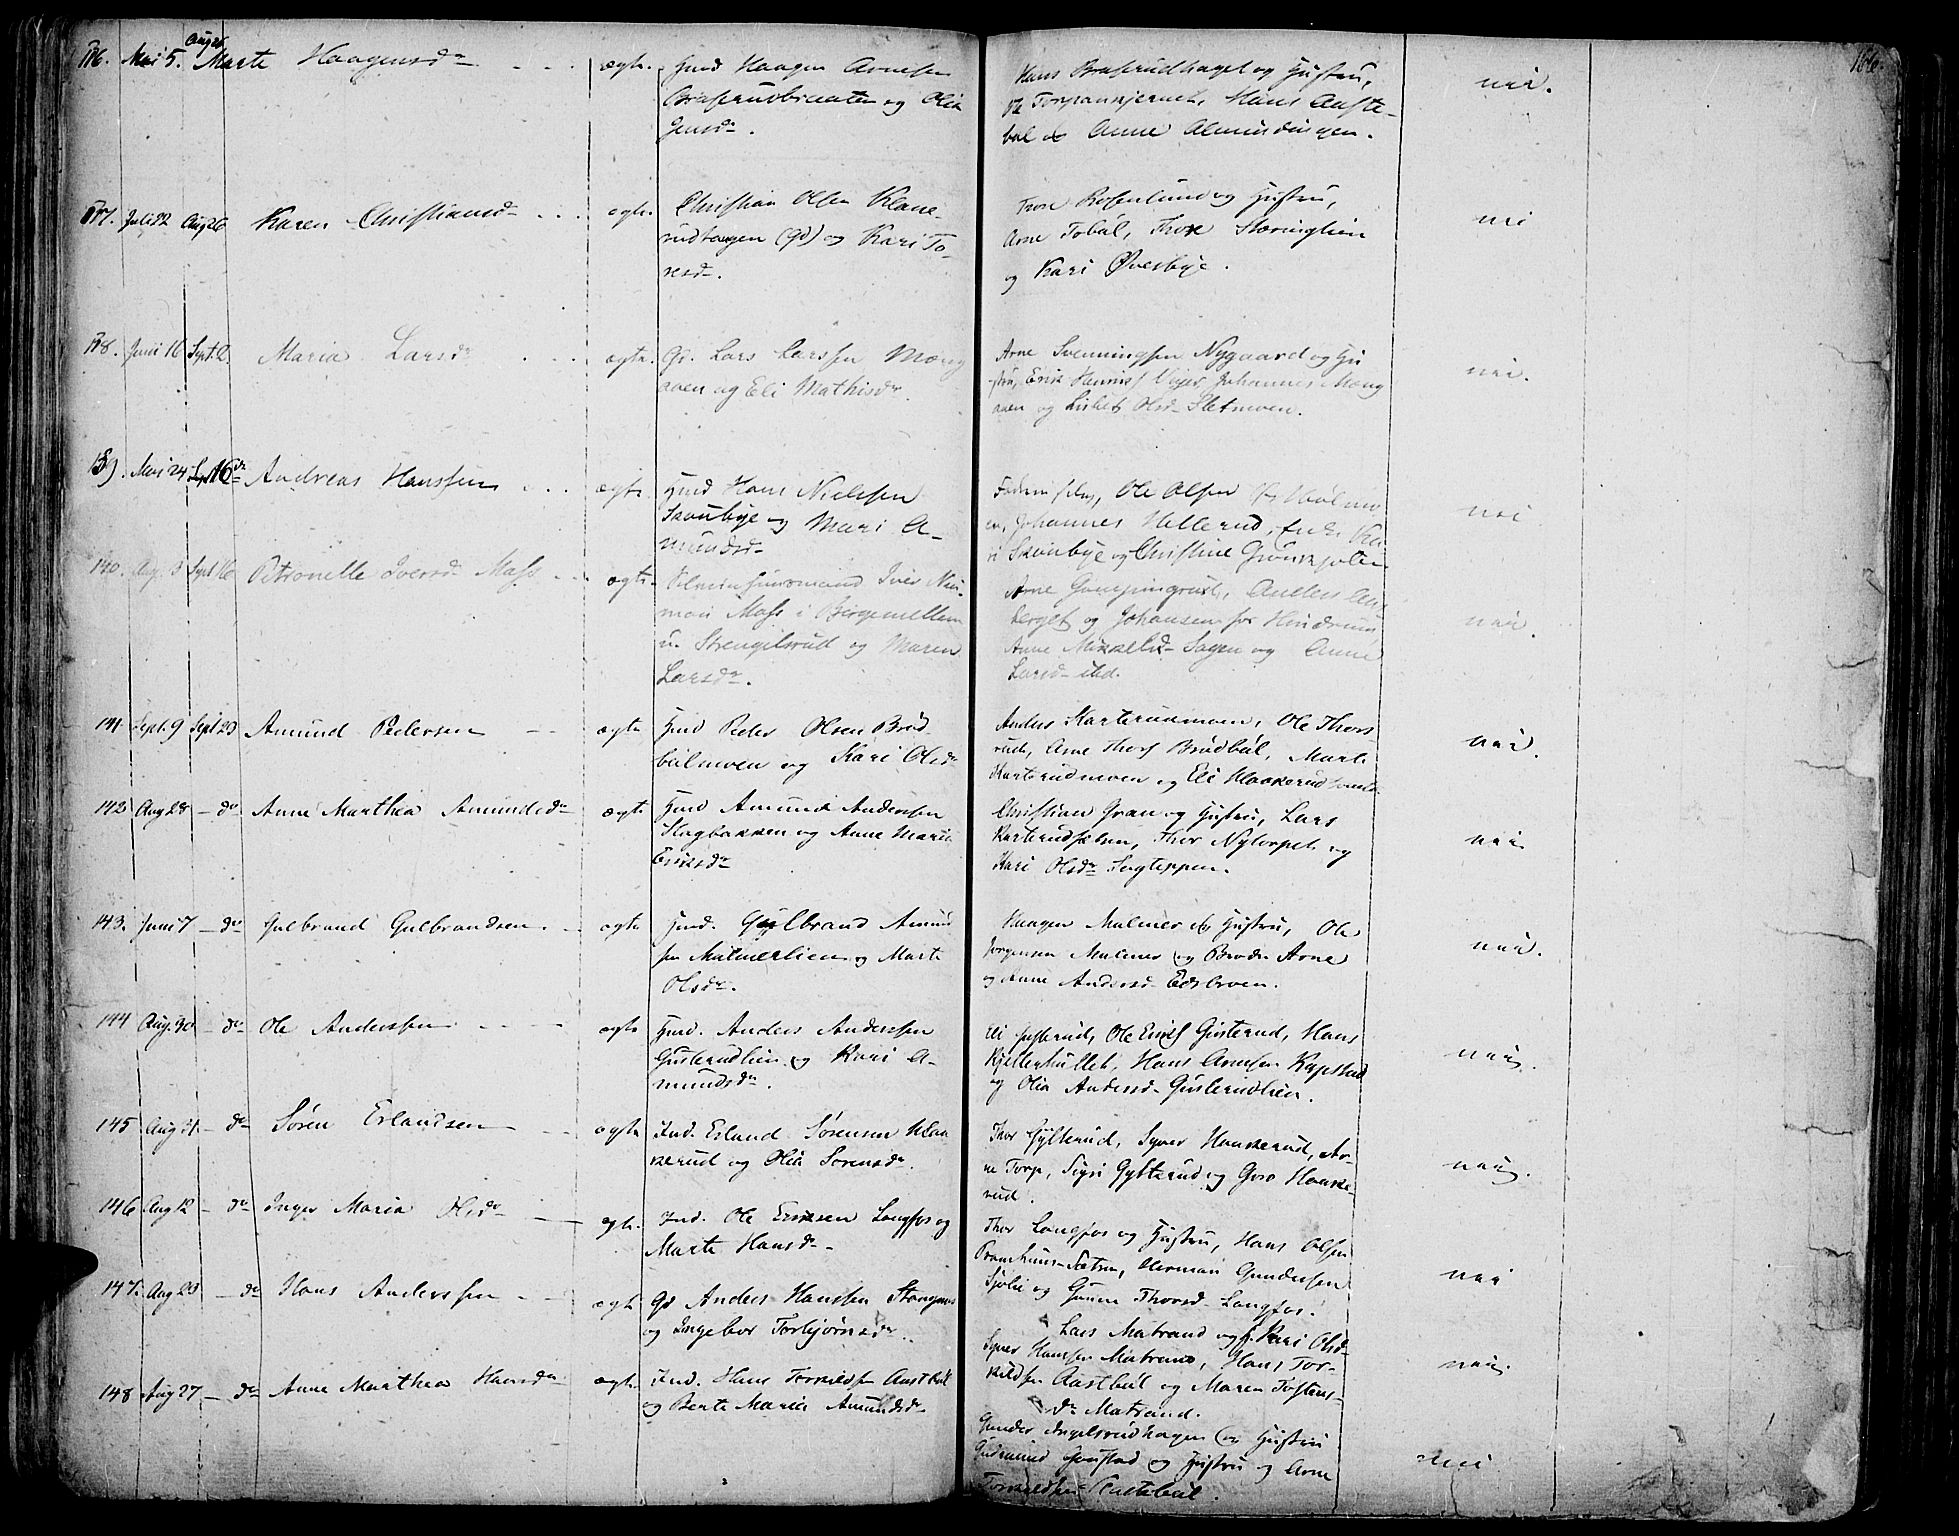 136. Mai 5. Aug 26 Marte Haagensdr - - - ægte. Husmd Haagen Arnesen
Braserudbraaten og Olia
Jensdr.
Hans Braserudhaget og Hustru,
Torpankjernet, Hans Auste-
bøl og Anne Almindingen.
nei.
166.
137. Juli 22 Aug 26 Karen Christiansdr - - - ægte. Christian Olsen Klane-
rudhaugen (Gd) og Kari To-
resdr.
Thore Rosenlund og Hustru,
Arne Tobøl, Thore Skaringlien
og Kari Øvesbye.
nei
138. Juni 16 Sept. 2. Maria Larsdr - - ægte. Gd. Lars Larssen Mang
aaen og Eli Mathisdr.
Arne Svenningsen Nygaard og Hu
stru, Erik Hanness Viger, Johannes Mang
aaen og Lisbet Olsdr Sletmoen.
nei.
139. Mai 24 Sept 16 Andreas Hanssen - - - ægte. Husmd Hans Nielsen
Skaubye og Mari A-
mundsdr
Faderen selv, Ole Olsen Holmo-
en, Johannes Hellerud, Enke Ka-
ri Skaubye og Christine
nei
140. Aug. 3 Sept 16 Petronelle Iversdr Moss - - ægte. Iver
Moss i Børgemellem
u. Strengelsrud og Maren
Larsdr.
Arne Anders
berget og Johansen for Hindrum
Anne Mikkelsdr Sagen og Anne
Larsdr ibd.
nei.
141. Sept. 9 Sept 23 Amund Pedersen - - ægte Husmd Peder Olsen Brød
bølmoen og Kari Olsdr
Anders Karterudmoen, Ole Thors
rud, Arne Thors Brødbøl, Marte
Karterudmoen og Eli Haakerud
nei.
142 Aug 28 - do Anne Marthea Amundsdr ægte Husmd Amund Andersen
Skogbakken og Anne Maria
Eriksdr
Christian Gran og Hustru, Lars
Karterud, Thor Nytorpet og
Kari Olsdr Sagteppen.
nei
143. Juni 7 - do Gulbrand Gulbrandsen. - ægte Husmd. Gulbrand Amund
sen Malmerlien og Marte
Olsdr.
Haagen Malmer og Hustru, Ole
Jørgensen Malmer og Broder Arne
og Anne Andersdr Eidsbroen.
nei.
144 Aug. 30 - do Ole Anderssen - - - ægte Husmd. Anders Anderssen
Gusterudlien og Kari A-
mundsdr.
Eli Gusterud, Ole Eriks Gusterud, Hans
Kjellerhultet, Hans Arnesen Kapstad
og Olia Andersdr Gusterudlien.
nei.
145 Aug 21 - do Søren Erlandsen - - ægte Ind. Erland Sørensen Haa
kerud og Olia Sørensdr.
Thor Gylterud, Syver Haakerud, Ar-
ne Torp, Sigri Gylterud og Goro Haake-
rud.
nei.
146 Aug 12 - do Inger Maria Olsdr - - ægte. Ind. Ole Eriksen Langfos og
Marte Hansdr -
Thor Langfos og Hustru, Hans Olsen
Sætren, Herman Gundersen
Sjølie og Gunne Thorsdr Langfos.
nei
147. Aug 23 - do Hans Anderssen - - ægte Gd Anders Hanssen Skragnæs
og Ingebor Torbjørnsdr.
Lars Matrand og H. Kari Olsd-
Syver Hanssen Matrand, Hans Tor-
kildsen Austbøl og Maren Tostens-
dr Matrand.
nei.
148 Aug 27 - do Anne Marthea Hansdr ægte. Ind. Hans Torkildsen Austbøl
og Berte Maria Amundsdr
Gunder Ingelsrudhagen og Hustru
Gudmund Gaustad og Hustru og Arne
Torkildsen Austbøl.
nei